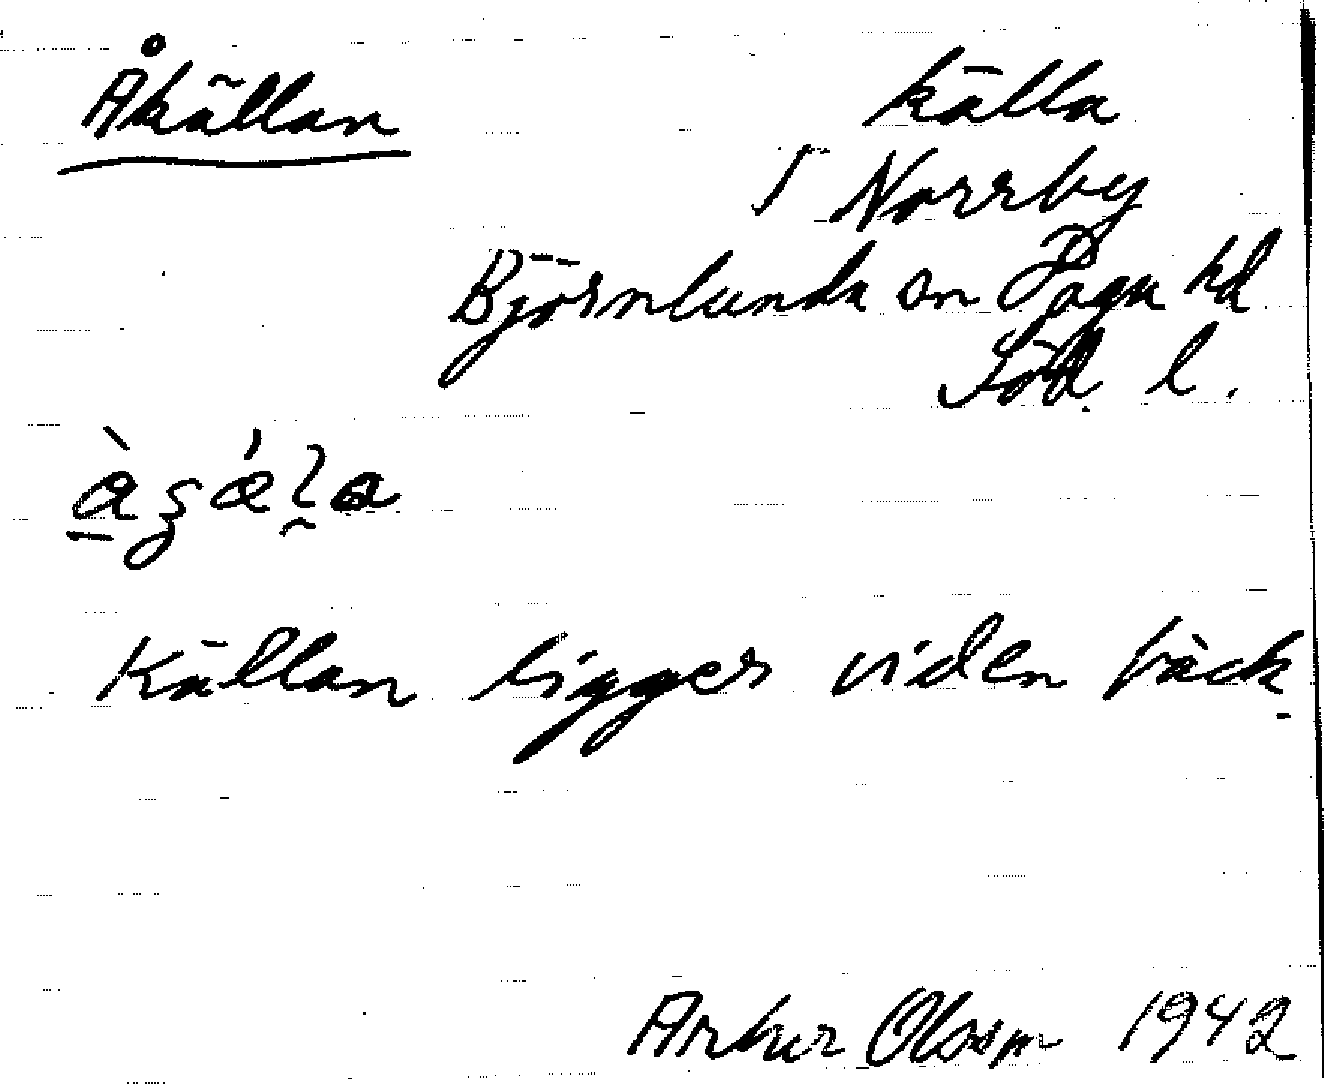 Åkällan
källa
I Norrby
Björnlunda sn Daga hd
Söd. l.
Källan ligger viden bäck.
Arthur Olsson 1942